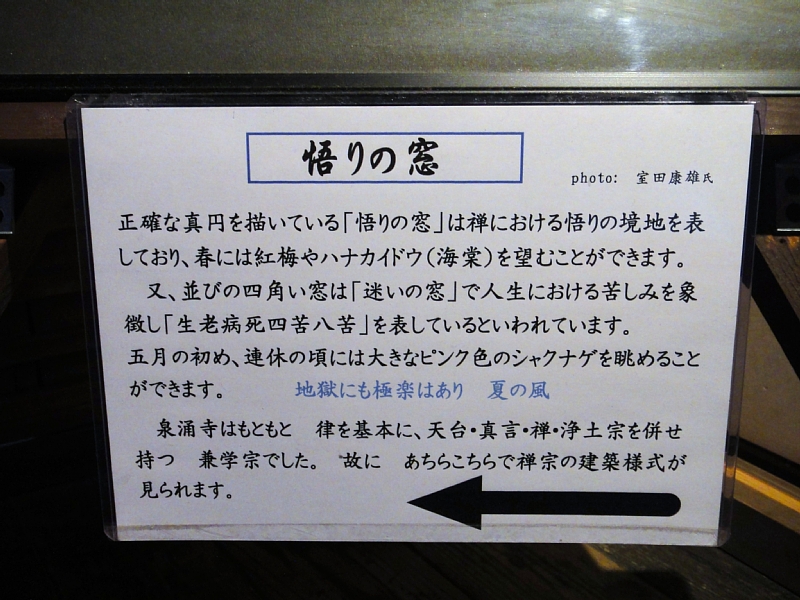 悟りの窓
photo: 室田康雄氏
正確な真円を描いている「悟りの窓」は禅における悟りの境地を表
しており、春には紅梅やハナカイドウ(海棠)を望むことができます。
又、並びの四角い窓は「迷いの窓」で人生における苦しみを象
徴し「生老病死四苦八苦」を表しているといわれています。
五月の初め、連休の頃には大きなピンク色のシャクナゲを眺めること
ができます。 地獄にも極楽はあり 夏の風
泉涌寺はもともと 律を基本に、天台・真言・禅・浄土宗を併せ
持つ 兼学宗でした。 故に あちらこちらで禅宗の建築様式が
見られます。